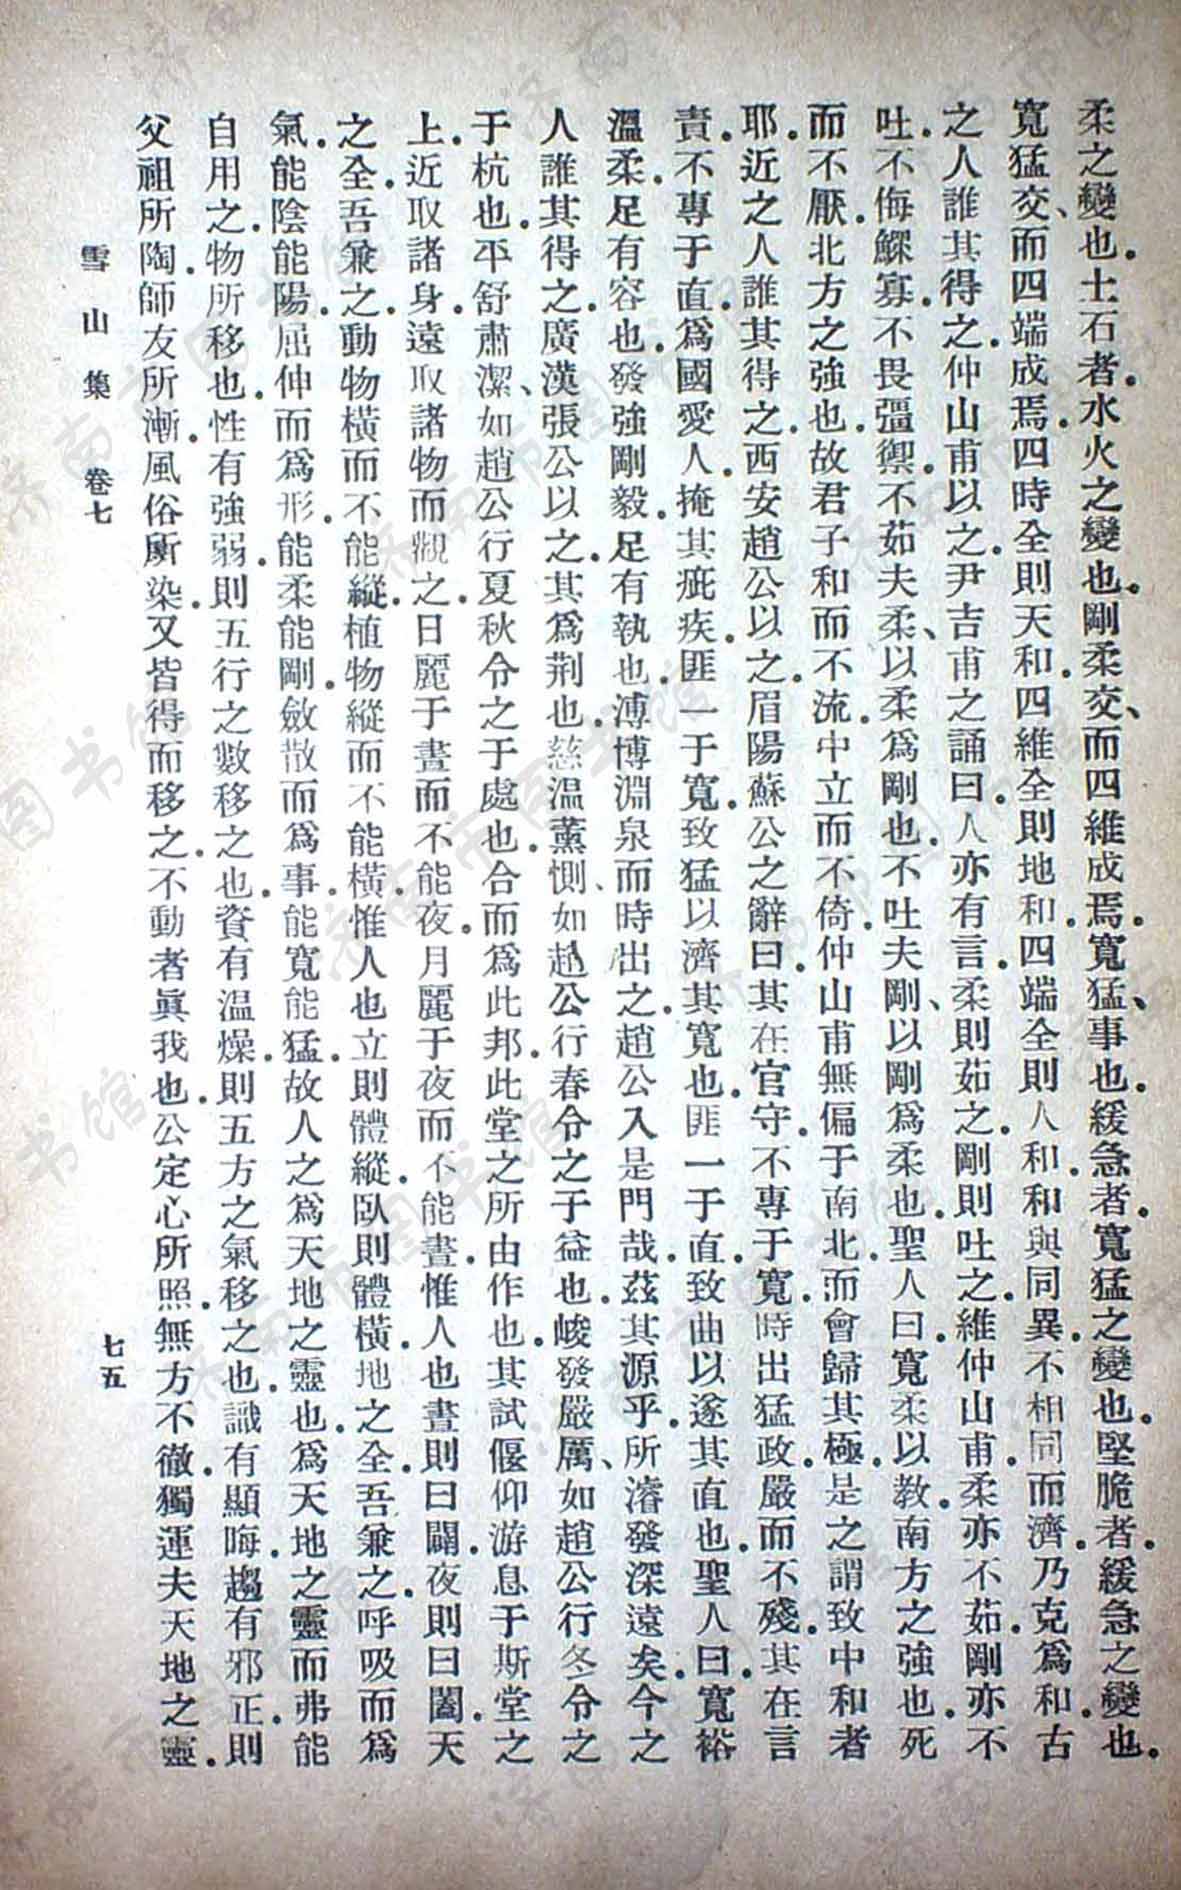 柔之變也。土石者。水火之變也。剛柔交、而四維成焉。寬猛、事也。緩急者。寬猛之變也。堅脆者。緩急之變也。
寬猛交、而四端成焉。四時全則天和。四維全則地和。四端全則人和。和與同異。不相同而濟。乃克爲和。古
之人誰其得之。仲山甫以之。尹吉甫之誦曰。人亦有言。柔則茹之。剛則吐之。維仲山甫。柔亦不茹。剛亦不
吐。不侮鰥寡。不畏彊禦。不茹夫柔、以柔爲剛也。不吐夫剛、以剛爲柔也。聖人曰。寬柔以教。南方之強也。死
而不厭。北方之強也。故君子和而不流。中立而不倚。仲山甫無偏于南北。而會歸其極。是之謂致中和者
耶。近之人誰其得之。西安趙公以之。眉陽蘇公之辭曰。其在官守。不專于寬。時出猛政。嚴而不殘。其在言
責。不專于直。爲國愛人。掩其疵疾。匪一于寬。致猛以濟其寬也。匪一于直。致曲以遂其直也。聖人曰。寬裕
溫柔。足有容也。發強剛毅。足有執也。溥博淵泉而時出之。趙公入是門哉。茲其源乎。所濬發深遠矣。今之
人誰其得之。廣漢張公以之。其爲荆也。慈温薰惻、如趙公行春令之于益也。峻發嚴厲、如趙公行冬令之
于杭也。平舒肅潔、如趙公行夏秋令之于處也。合而爲此邦。此堂之所由作也。其試偃仰游息于斯堂之
上。近取諸身。遠取諸物而觀之。日麗于晝而不能夜。月麗于夜而不能晝。惟人也晝則曰闢。夜則曰闔。天
之全。吾兼之。動物橫而不能縱。植物縱而不能橫。惟人也立則體縱。臥則體橫。地之全。吾兼之。呼吸而爲
氣。能陰能陽。屈伸而爲形。能柔能剛。斂散而爲事。能寬能猛。故人之爲天地之靈也。爲天地之靈而弗能
自用之。物所移也。性有強弱。則五行之數移之也。資有温燥。則五方之氣移之也。識有顯晦。趨有邪正。則
父祖所陶。師友所漸。風俗所染。又皆得而移之。不動者眞我也。公定心所照。無方不徹。獨運夫天地之靈。
雪山集　卷七　七五